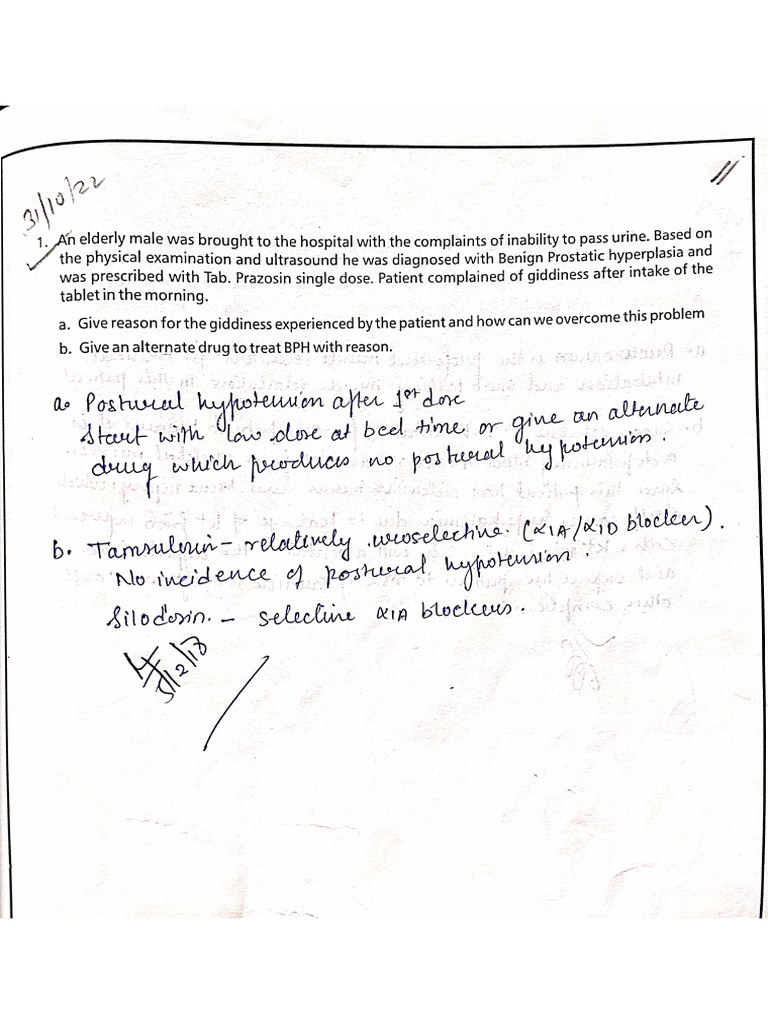 31/10/22
11
1. An elderly male was brought to the hospital with the complaints of inability to pass urine. Based on
the physical examination and ultrasound he was diagnosed with Benign Prostatic hyperplasia and
was prescribed with Tab. Prazosin single dose. Patient complained of giddiness after intake of the
tablet in the morning.
a. Give reason for the giddiness experienced by the patient and how can we overcome this problem
b. Give an alternate drug to treat BPH with reason.
a. Postural hypotension after 1st dose
Start with low dose at bed time or give an alternate
drug which produces no postural hypotension.
b. Tamsulosin - relatively uroselective. (α1A/α1D blocker).
No incidence of postural hypotension
Silodosin. - selective α1A blockers.
5/12/18